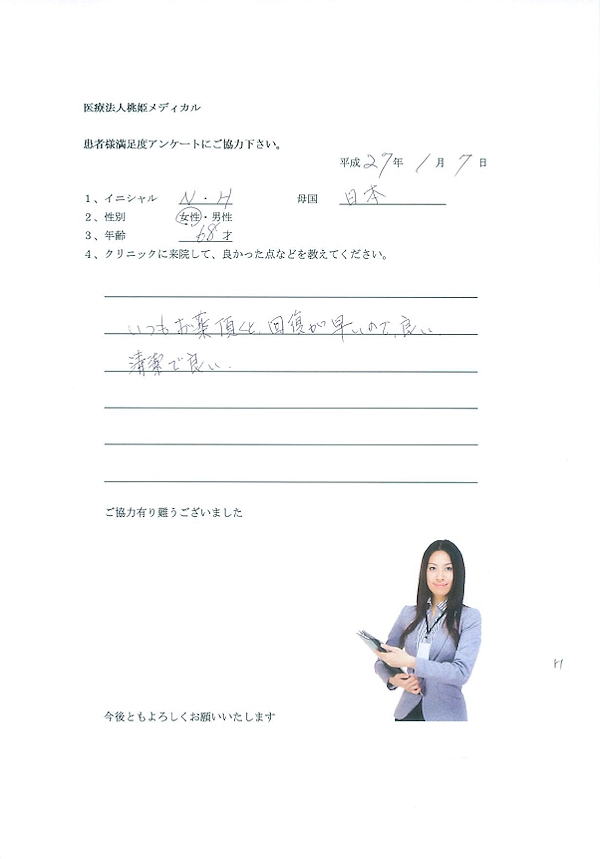 医療法人桃姫メディカル
患者様満足度アンケートにご協力下さい。
平成 27 年 1 月 7 日
1、イニシャル N・H 母国 日本
2、性別 女性・男性
3、年齢 68 才
4、クリニックに来院して、良かった点などを教えてください。
いつもお薬頂くと、回復が早いので、良い
清潔で良い.
ご協力有り難うございました
今後ともよろしくお願いいたします